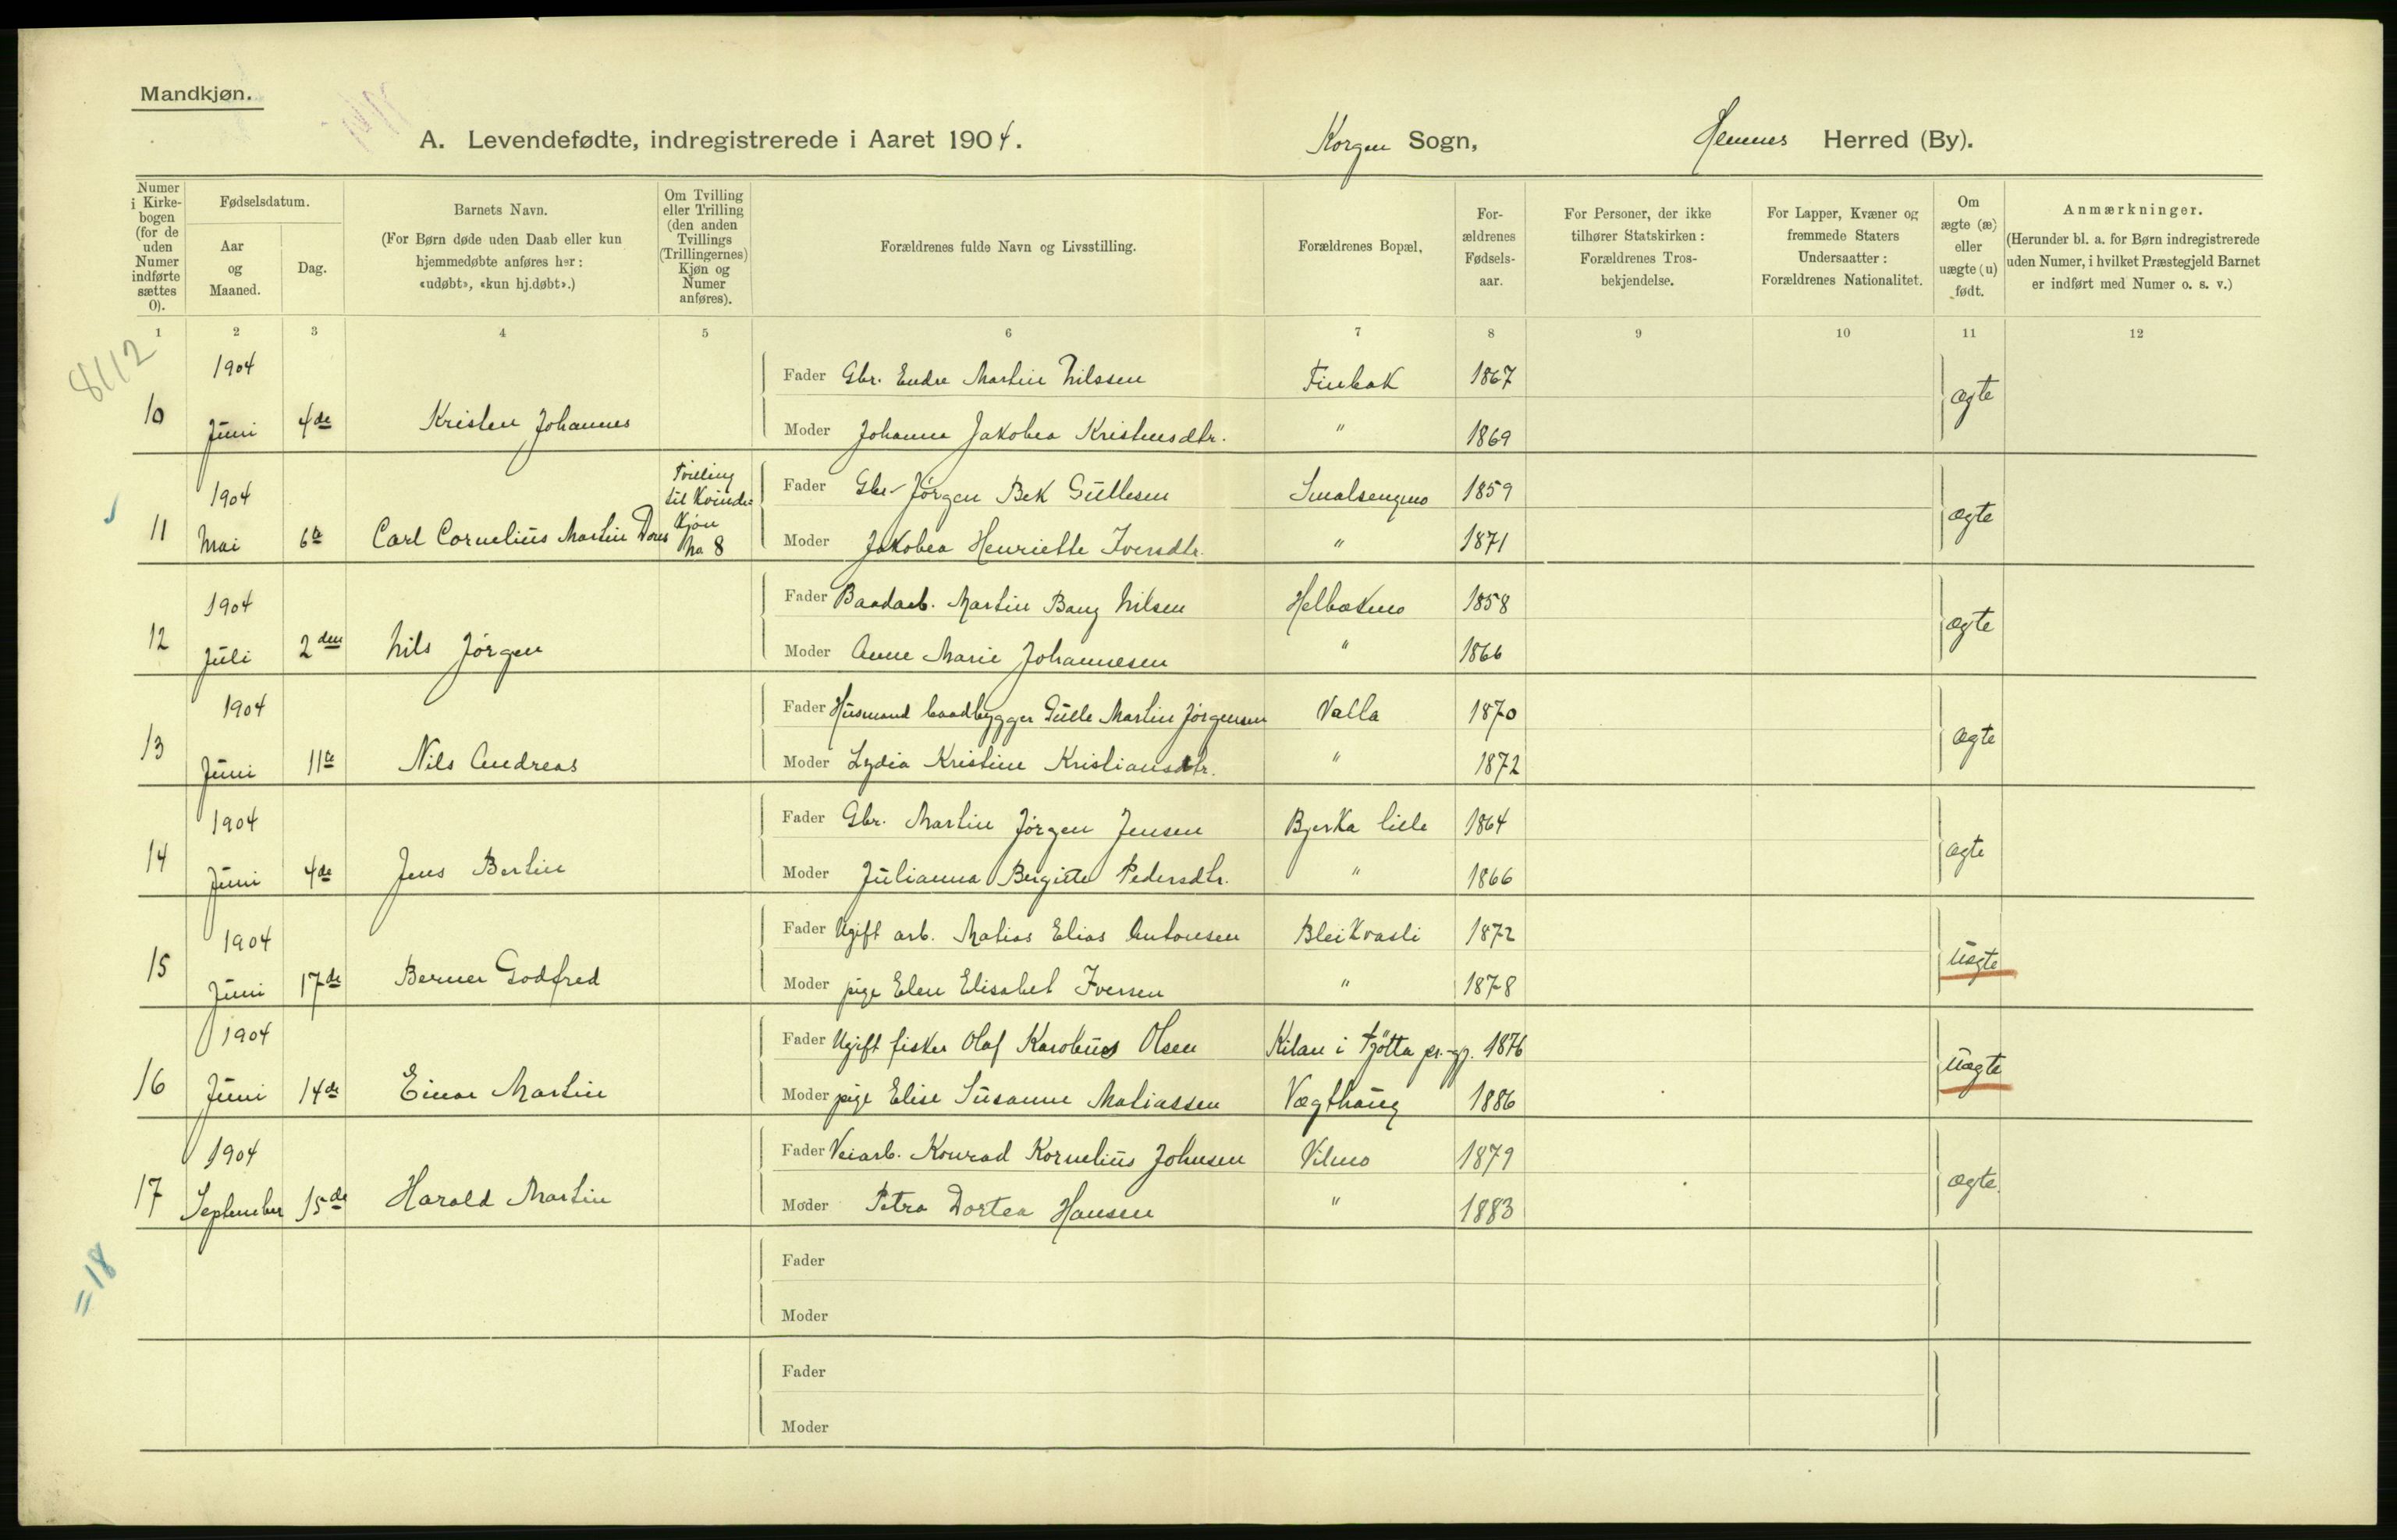 Mandkjøn.
A. Levendefødte, indregistrerede i Aaret 1904.
Korgen Sogn,
Hemnes Herred (By).
Numer i Kirke-bogen (for de uden Numer indførte sættes 0).
Fødselsdatum.
Aar og Maaned.
Dag.
Barnets Navn.
(For Børn døde uden Daab eller kun hjemmedøbte anføres her: «udøbt», «kun hj.døbt».)
Om Tvilling eller Trilling (den anden Tvillings (Trillingernes) Kjøn og Numer anføres).
Forældrenes fulde Navn og Livsstilling.
Forældrenes Bopæl,
For-ældrenes Fødsels-aar.
For Personer, der ikke tilhører Statskirken: Forældrenes Tros-bekjendelse.
For Lapper, Kvæner og fremmede Staters Undersaatter: Forældrenes Nationalitet.
Om ægte (æ) eller uægte (u) født.
Anmærkninger.
(Herunder bl. a. for Børn indregistrerede uden Numer, i hvilket Præstegjeld Barnet er indført med Numer o. s. v.)
1 2 3 4 5 6 7 8 9 10 11 12
8112
1904 Fader Gbr. Endre Martin Nilssen Finbak 1867 ægte
10 Juni 4de Kristen Johannes Moder Johanna Jakobea Kristensdtr. " 1869
1904 Tvilling til Kvinde- Kjøn No 8 Fader Gbr. Jørgen Bek Gullesen Smalsengmo 1859 ægte
11 Mai 6te Carl Cornelius Martin Dores Moder Jakobea Henriette Iversdtr. " 1871
1904 Fader Baadarb. Martin Bang Nilsen Helbækmo 1858 ægte
12 Juli 2den Nils Jørgen Moder Anne Marie Johannesen " 1866
1904 Fader Husmand baadbygger Gulle Martin Jørgensen Valla 1870 ægte
13 Juni 11te Nils Andreas Moder Lydia Kristine Kristiansdtr. " 1872
1904 Fader Gbr. Martin Jørgen Jensen Bjerka lille 1864 ægte
14 Juni 4de Jens Bertin Moder Julianna Bergitte Pedersdtr. " 1866
1904 Fader Ugift arb. Matias Elias Antonsen Bleikvasli 1872 uægte
15 Juni 17de Berner Godfred Moder pige Elen Elisabet Iversen " 1878
1904 Fader Ugift fisker Olaf Karolius Olsen Kilan i Tjøtta pr.gj. 1876 uægte
16 Juni 14de Einar Martin Moder pige Elise Susanne Matiassen Vægthaug 1886
1904 Fader Veiarb. Konrad Kornelius Johnsen Vilmo 1879 ægte.
17 September 15de Harald Martin Moder Petra Dortea Hansen " 1883
=18
Fader
Moder
Fader
Moder